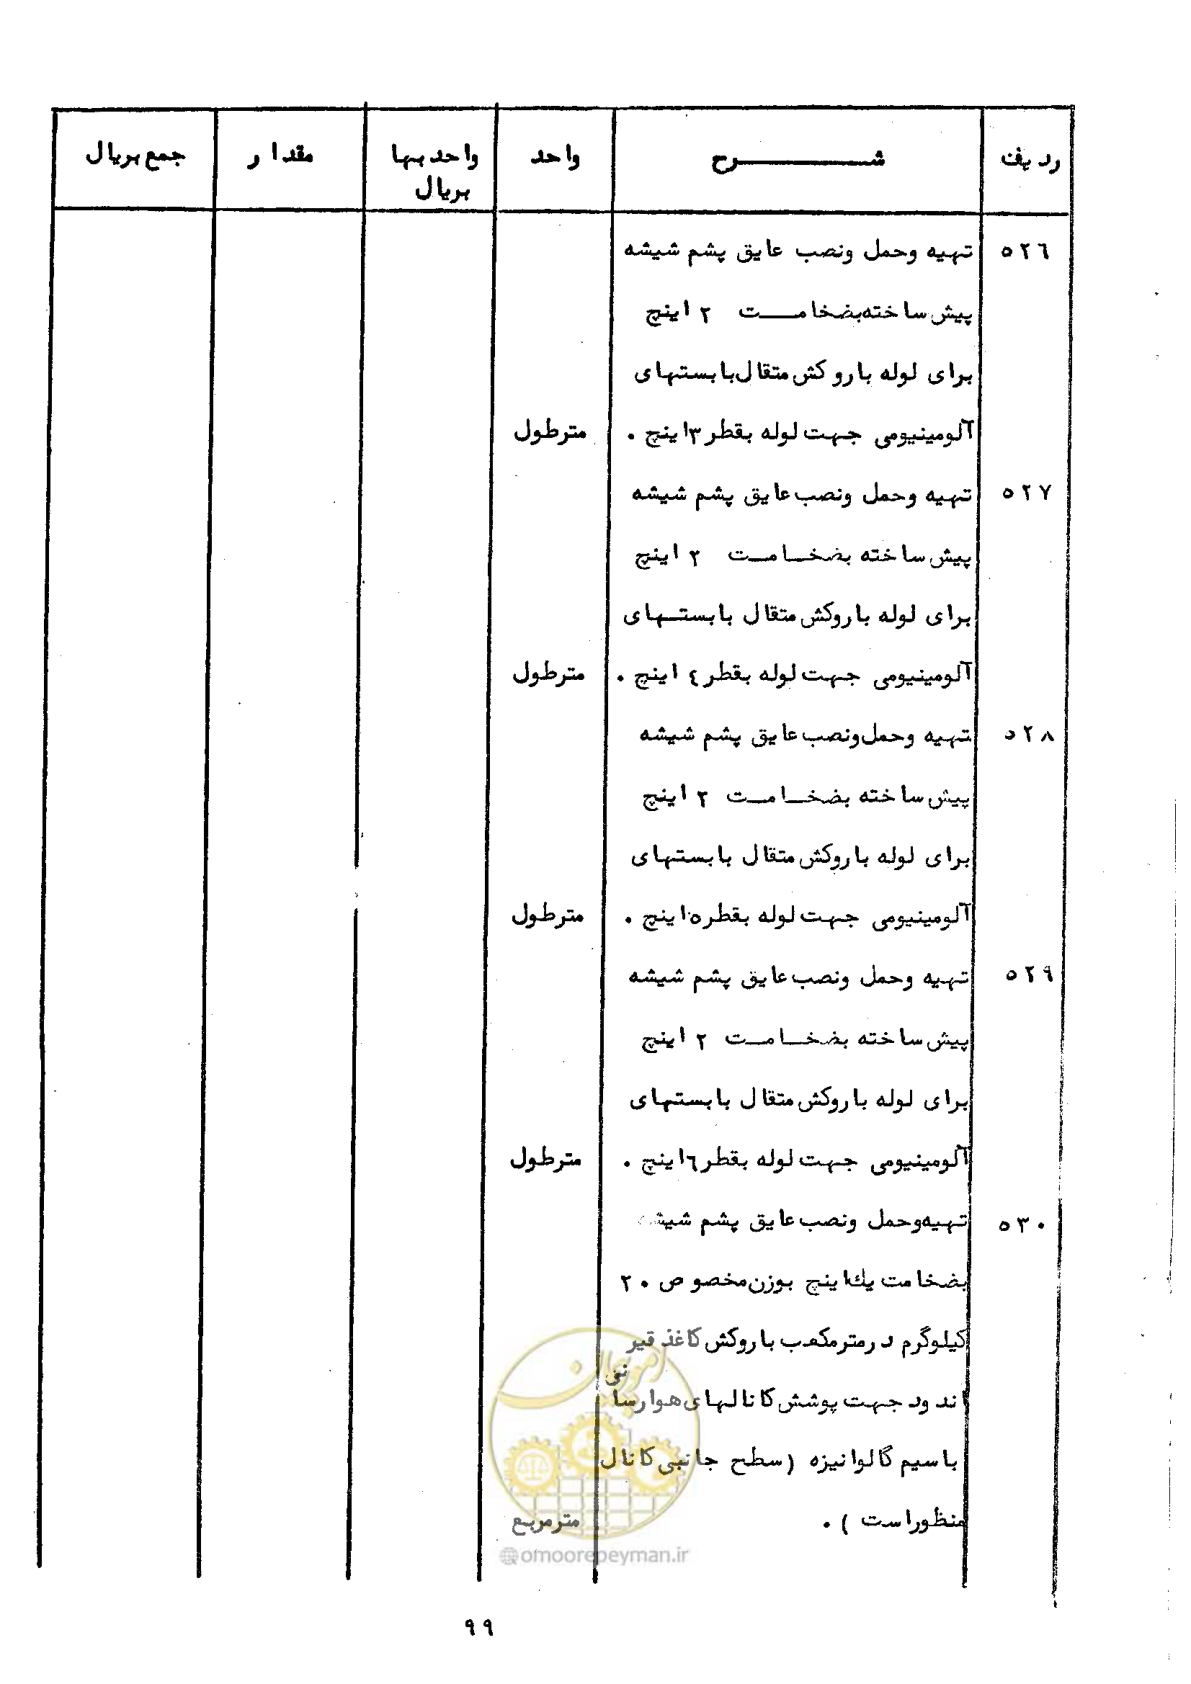 ردیف شرح واحد واحد بها مقدار جمع بریال
بریال
۵۲۶ تهیه وحمل ونصب عایق پشم شیشه
پیش ساخته بضخامت ۲ اینچ
برای لوله با روکش متقال با بستهای
آلومینیومی جهت لوله بقطر ۳ اینچ . مترطول
۵۲۷ تهیه وحمل ونصب عایق پشم شیشه
پیش ساخته بضخامت ۲ اینچ
برای لوله با روکش متقال با بستهای
آلومینیومی جهت لوله بقطر ٤ اینچ . مترطول
۵۲۸ تهیه وحمل ونصب عایق پشم شیشه
پیش ساخته بضخامت ۲ اینچ
برای لوله با روکش متقال با بستهای
آلومینیومی جهت لوله بقطر ۵ اینچ . مترطول
۵۲۹ تهیه وحمل ونصب عایق پشم شیشه
پیش ساخته بضخامت ۲ اینچ
برای لوله با روکش متقال با بستهای
آلومینیومی جهت لوله بقطر ۶ اینچ . مترطول
۵۳۰ تهیه وحمل ونصب عایق پشم شیشه
بضخامت یك اینچ بوزن مخصوص ۲۰
کیلوگرم درمترمکعب با روکش کاغذ قیر
اندود جهت پوشش کانالهای هوا رسانی
با سیم گالوانیزه (سطح جانبی کانال
منظور است ) . مترمربع
امور پیمان
@omoorepeyman.ir
۹۹